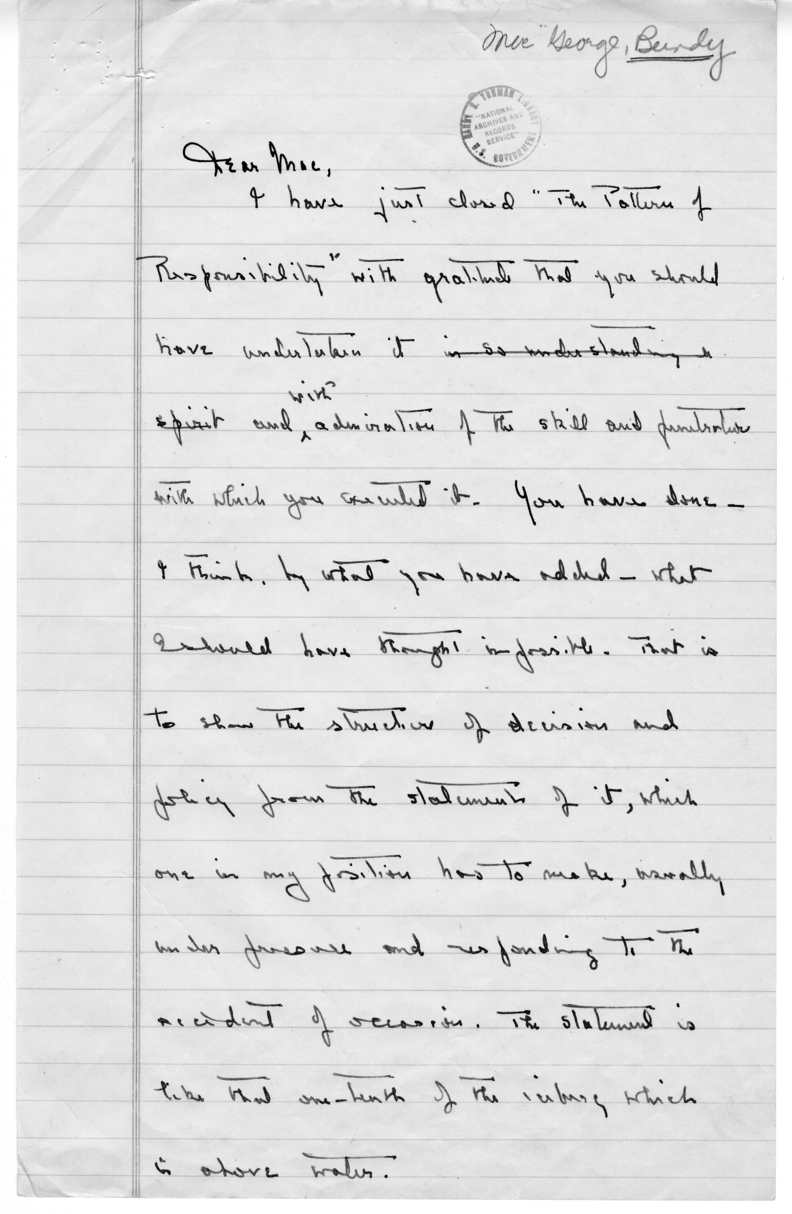 Mac George, Bundy
HARRY S. TRUMAN LIBRARY
"NATIONAL
ARCHIVES AND
RECORDS
SERVICE"
U.S. GOVERNMENT
Dear Mac,
I have just closed "The Pattern of
Responsibility" with gratitude that you should
have undertaken it in so understanding a
with
spirit and admiration of the skill and penetration
with which you executed it. You have done –
I think, by what you have added – what
I should have thought impossible. That is
to show the structure of decision and
policy from the statements of it, which
one in my position has to make, usually
under pressure and responding to the
accident of occasion. The statement is
like that one-tenth of the iceberg which
is above water.